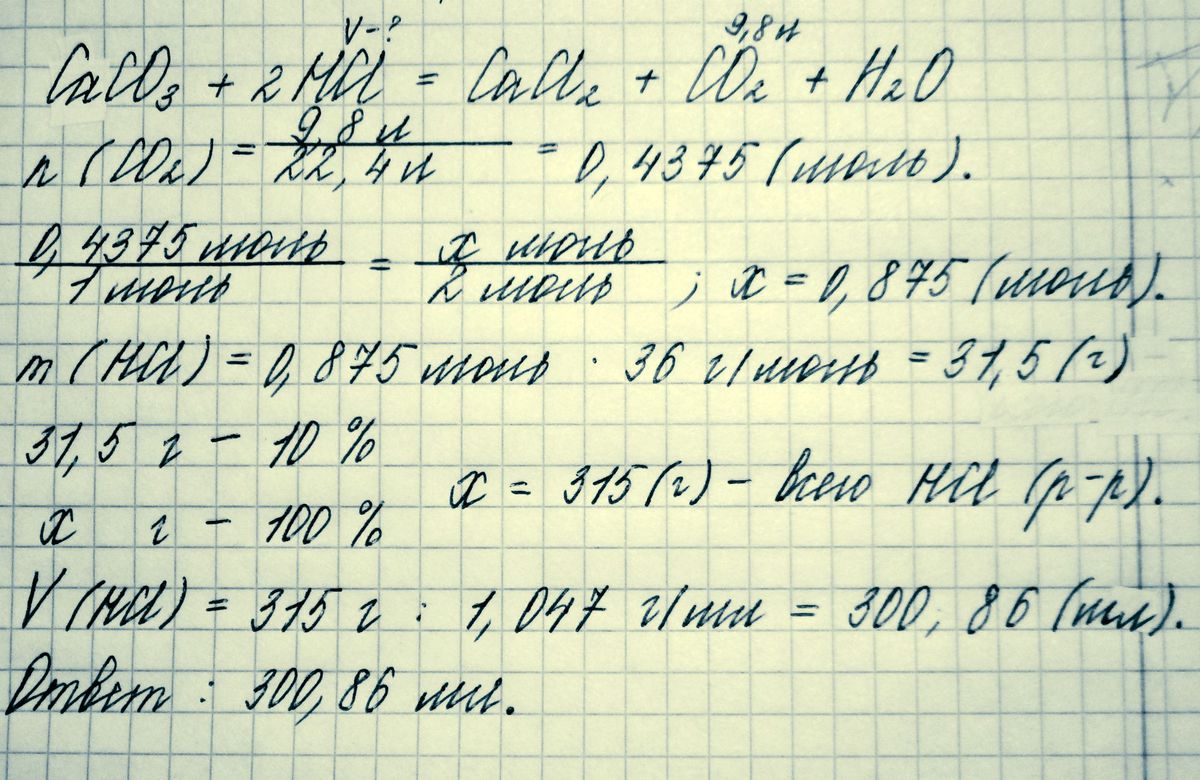 V-? 9,8 л
CaCO₃ + 2HCl = CaCl₂ + CO₂ + H₂O
n (CO₂) = 9,8 л / 22,4 л = 0,4375 (моль).
0,4375 моль / 1 моль = x моль / 2 моль ; x = 0,875 (моль).
m (HCl) = 0,875 моль · 36 г/моль = 31,5 (г)
31,5 г – 10 %
x г – 100 %
x = 315 (г) – всего HCl (р-р).
V (HCl) = 315 г : 1,047 г/мл = 300,86 (мл).
Ответ : 300,86 мл.